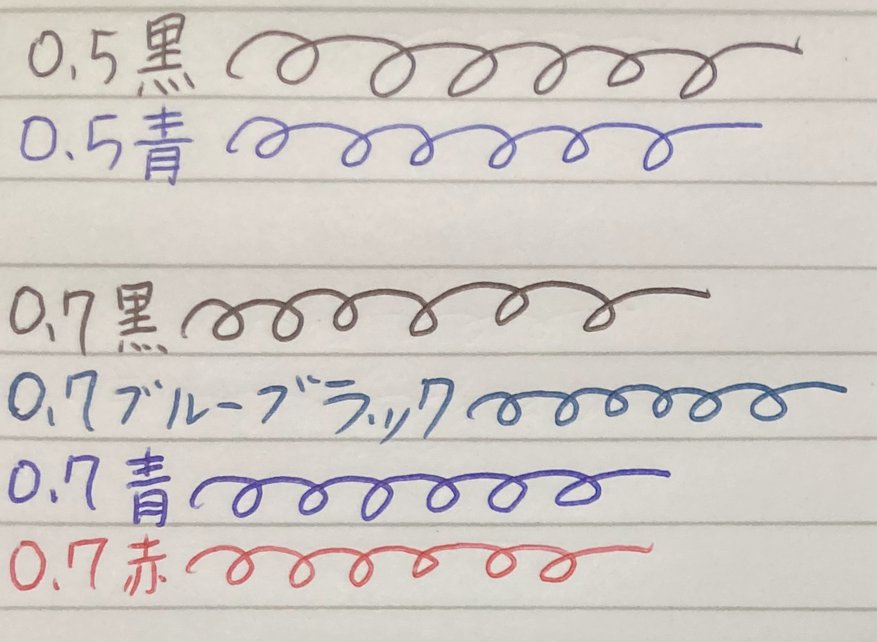 0.5 黒
0.5 青
0.7 黒
0.7 ブルーブラック
0.7 青
0.7 赤